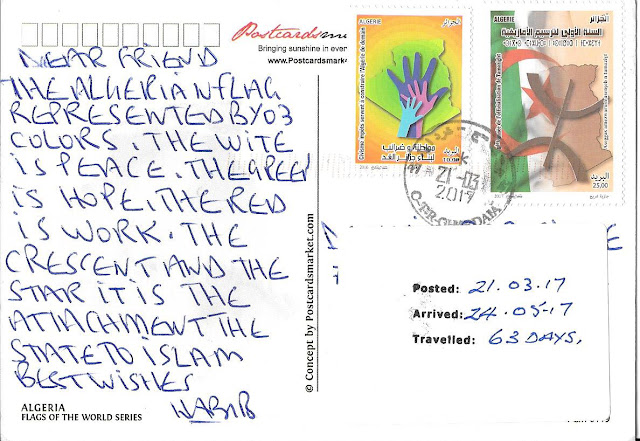 Postcardsma
Bringing sunshine in ever
www.Postcardsmarke
DEAR FRIEND
THE ALGERIAN FLAG
REPRESENTED BY 03
COLORS. THE WITE
IS PEACE. THE GREEN
IS HOPE. THE RED
IS WORK. THE
CRESCENT AND THE
STAR IT IS THE
ATTACHMENT THE
STATE TO ISLAM
BEST WISHES
HABIB
ALGERIA
FLAGS OF THE WORLD SERIES
© Concept by Postcardsmarket.com
ALGERIE
الجزائر
مواطنة و ضرائب
لبناء جزائر الغد
البريد
10.00
ALGERIE
الجزائر
السنة الأولى لترسيم الأمازيغية
البريد
25.00
21-03
2017
Posted: 21.03.17
Arrived: 24.05.17
Travelled: 63 DAYS.